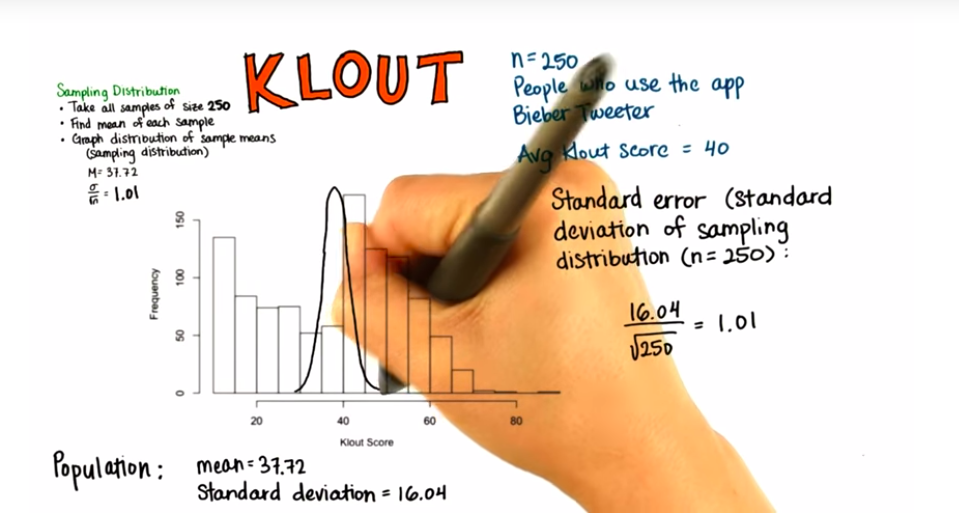 KLOUT
Sampling Distribution
• Take all samples of size 250
• Find mean of each sample
• Graph distribution of sample means
(sampling distribution)
M= 37.72
σ/√n = 1.01
n=250
People who use the app
Bieber Tweeter
Avg Klout Score = 40
Standard error (standard
deviation of sampling
distribution (n=250):
16.04
√250
= 1.01
Frequency
150
100
50
0
20 40 60 80
Klout Score
Population: mean=37.72
Standard deviation = 16.04